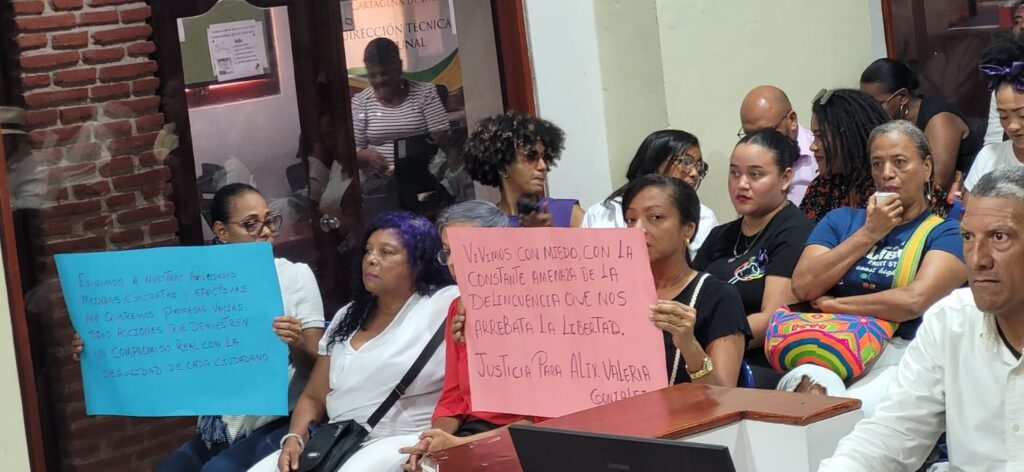 CARTAGENA DE IN
DIRECCIÓN TÉCNICA
UNAL
EXIGIMOS A NUESTRAS AUTORIDADES
MEDIDAS CONCRETAS Y EFECTIVAS
NO QUEREMOS PROMESAS VACIAS,
SINO ACCIONES QUE DEMUESTREN
UN COMPROMISO REAL CON LA
SEGURIDAD DE CADA CIUDADANO.
VIVIMOS CON MIEDO, CON LA
CONSTANTE AMENAZA DE LA
DELINCUENCIA QUE NOS
ARREBATA LA LIBERTAD.
JUSTICIA PARA ALIX VALERIA
GONZALEZ
FRUIT ST